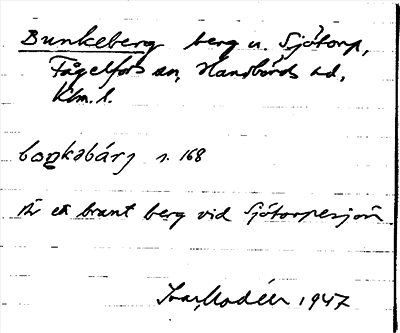 Bunkeberg berg u. Sjötorp,
Fågelfors sn, Handbörds hd,
Klm. l.
boŋkəbárj s. 168
Är ett brant berg vid Sjötorpesjön
Ivar Modéer 1947